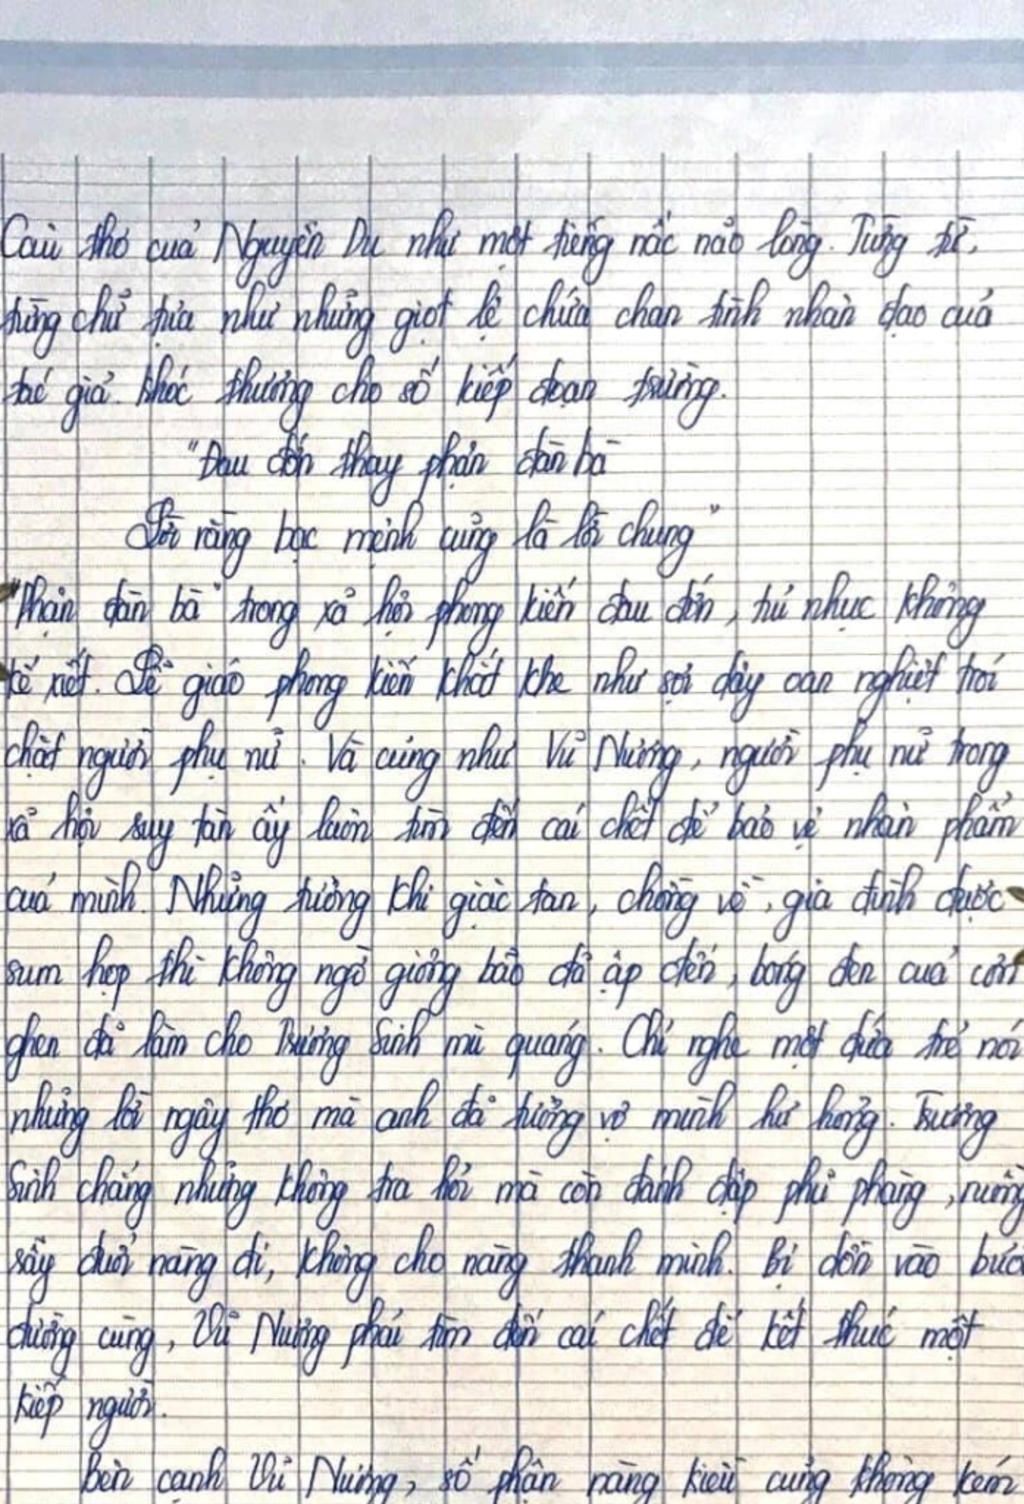 Câu thơ của Nguyễn Du như một tiếng nấc não lòng. Từng từ,
từng chữ tựa như những giọt lệ chứa chan tình nhân đạo của
tác giả khóc thương cho số kiếp đoạn trường.
"Đau đớn thay phận đàn bà
Lời rằng bạc mệnh cũng là lời chung"
"Phận đàn bà" trong xã hội phong kiến đau đớn, tủi nhục không
kể xiết. Lễ giáo phong kiến khắt khe như sợi dây oan nghiệt trói
chặt người phụ nữ. Và cũng như Vũ Nương, người phụ nữ trong
xã hội suy tàn ấy luôn tìm đến cái chết để bảo vệ nhân phẩm
của mình. Những tưởng khi giặc tan, chồng về, gia đình được
sum họp thì không ngờ giông bão đã ập đến, bóng đen của cơn
ghen đã làm cho Trương Sinh mù quáng. Chỉ nghe một đứa trẻ nói
những lời ngây thơ mà anh đã tưởng vợ mình hư hỏng. Trương
Sinh chẳng những không tra hỏi mà còn đánh đập phũ phàng, ruồng
rẫy đuổi nàng đi, không cho nàng thanh minh. Bị dồn vào bước
đường cùng, Vũ Nương phải tìm đến cái chết để kết thúc một
kiếp người.
Bên cạnh Vũ Nương, số phận nàng Kiều cũng không kém